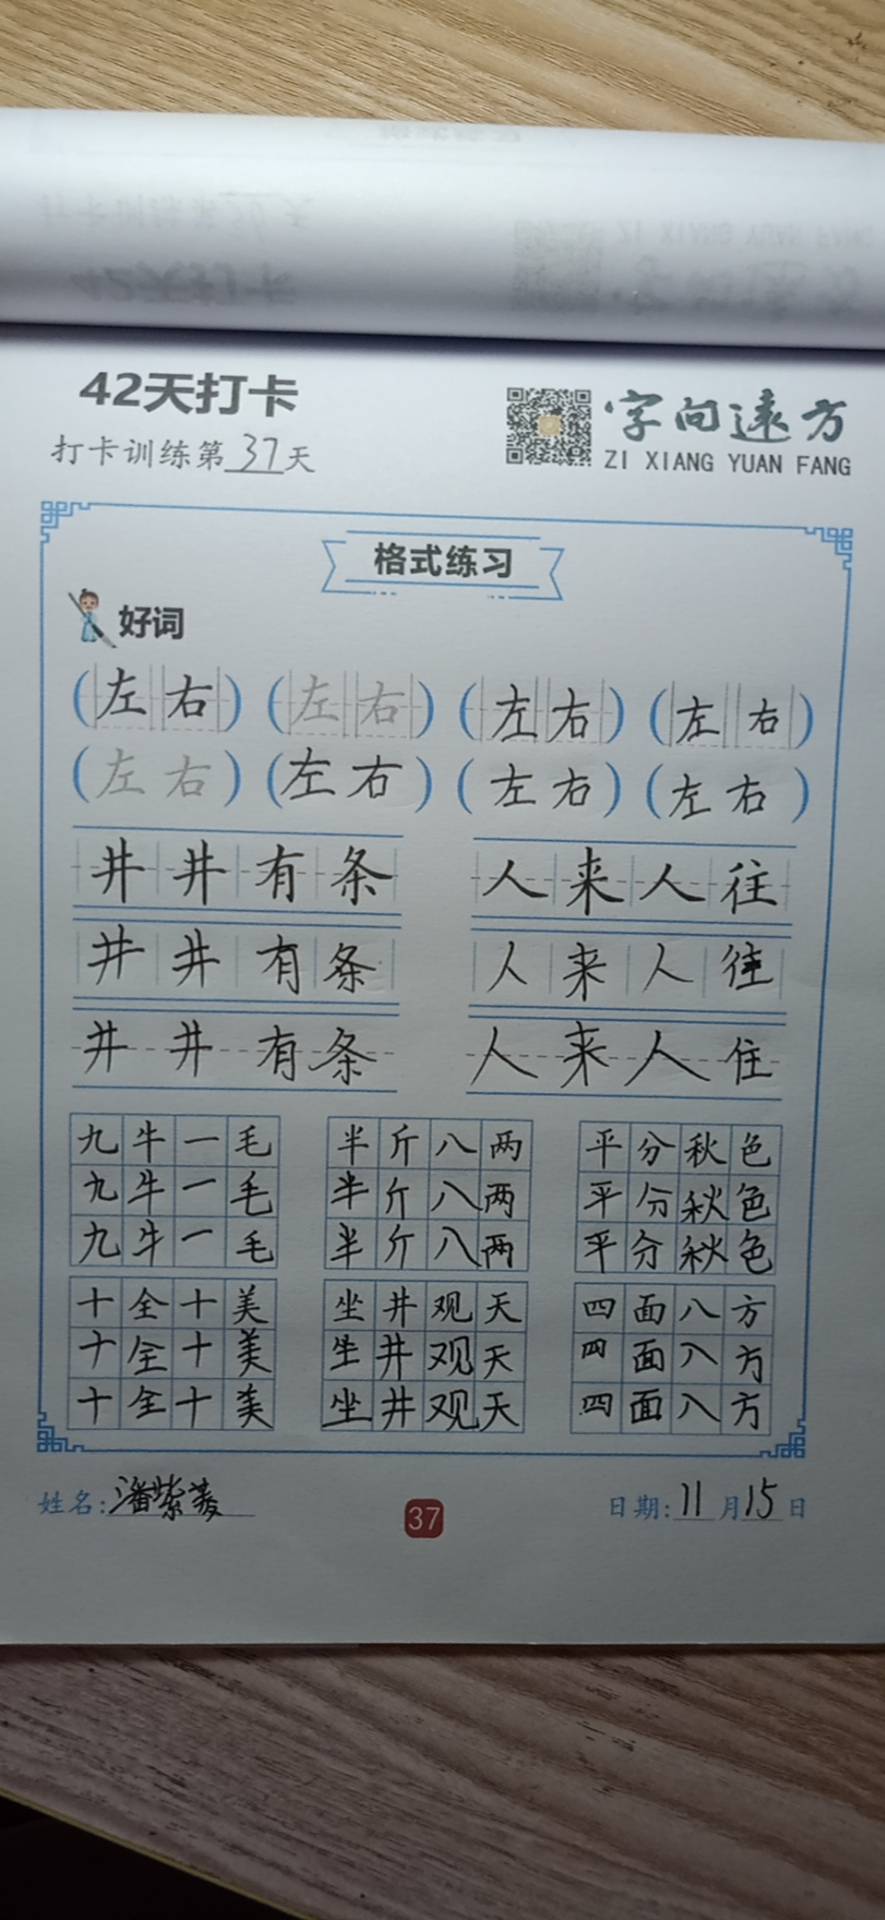 42天打卡
打卡训练第37天
字向远方
ZI XIANG YUAN FANG
格式练习
好词
(左右) (左右) (左右) (左右)
(左右) (左右) (左右) (左右)
井井有条 人来人往
井井有条 人来人往
井井有条 人来人住
九牛一毛 半斤八两 平分秋色
九牛一毛 半斤八两 平分秋色
九牛一毛 半斤八两 平分秋色
十全十美 坐井观天 四面八方
十全十美 坐井观天 四面八方
十全十美 坐井观天 四面八方
姓名:潘紫菱 37 日期:11月15日